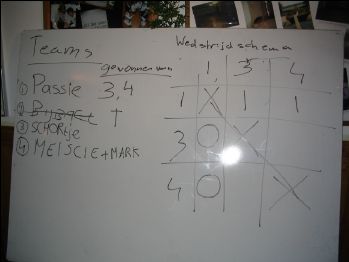 Teams
gewonnen van
① Passie 3,4
② †
③ SCHORTJE
④ MEISCIE + MARK
Wedstrijdschema
1, 3 4
1 X 1 1
3 O X
4 O X